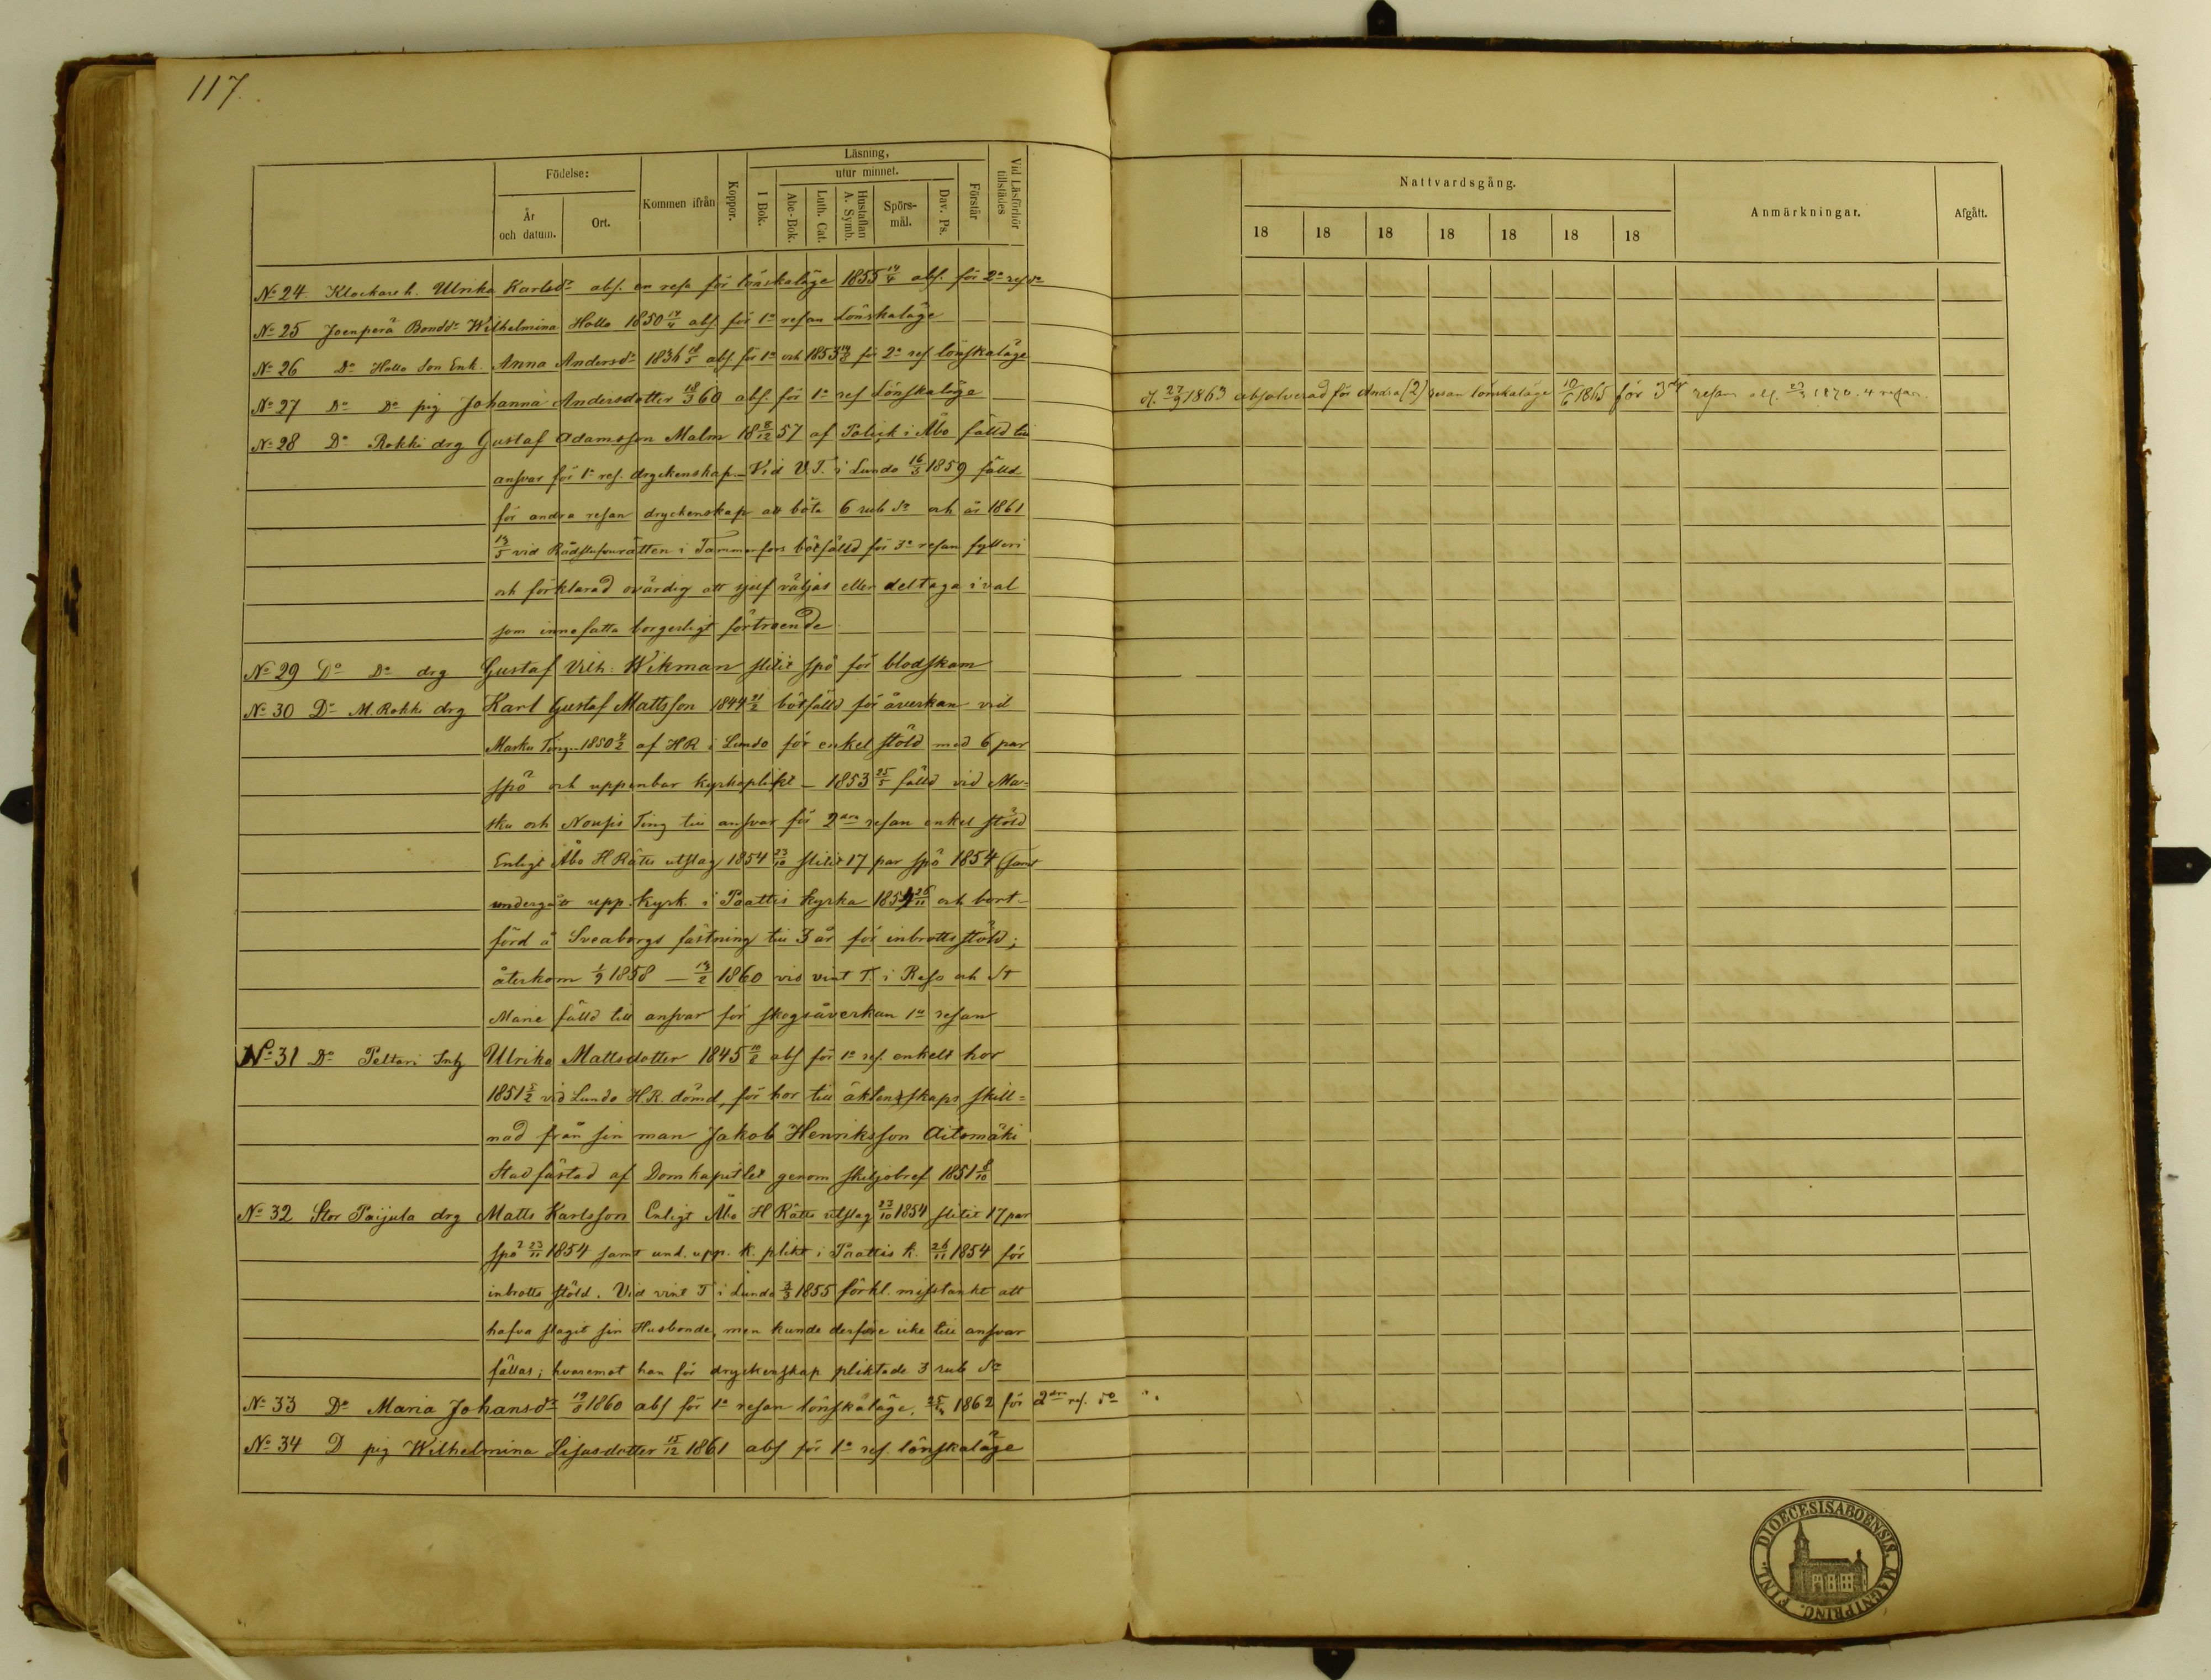 117.
Födelse:
År och datum.
Ort.
Kommen ifrån
Koppor.
Läsning,
I Bok.
utur minnet.
Abc-Bok.
Luth. Cat.
Hustaflan A. Symb.
Spörs-mål.
Dav. Ps.
Förstår
Vid Läsförhör tillstädes
Nattvardsgång.
18 18 18 18 18 18 18
Anmärkningar.
Afgått.
No 24 Klockare h. Ulrika Karlsdr abs. en resa för lönskaläge 1855 abs. för 2a res do
No 25 Joenperä Bonddr Wilhelmina Hollo 1850 abs för 1a resan Lönskaläge
No 26 Do Hollo Son Enk. Anna Andersdr 1836 abs för 1a och 1853 för 2a res lönskaläge
No 27 Do Do pig Johanna Andersdotter 18/3 60 abs. för 1a res Lönskaläge
27/9 1863 absolverad för Andra (2) resan lönskaläge 10/6 1865 för 3dje resan 1870. 4 resan.
No 28 Do Rokki drg Gustaf Adamsson Malm 18 8/12 57 af Polick i Åbo fälld till
ansvar för 1a res. dryckenskap - Vid V.T. i Lundo 16/3 1859 fälld
för andra resan dryckenskap att böta 6 rub Sr och år 1861
vid Rådstufvurätten i Tammerfors bötfälld för 3a resan fylleri
och förklarad ovärdig att sjelf väljas eller deltaga i val
som innefatta borgerligt förtroende
No 29 Do Do drg Gustaf Vilh: Wikman slitit spö för blodskam
No 30 Do M. Rokki drg Karl Gustaf Mattsson 1844 bötfälld för åverkan vid
Masku Ting - 1850 af HR i Lundo för enkel stöld med 6 par
spö och uppenbar kyrkoplikt - 1853 25/5 fälld vid Ma=
sku och Nousis Ting till ansvar för 2dra resan enkel stöld
Enligt Åbo H Rätts utslag 1854 23/10 slitit 17 par spö 1854 samt
undergått upp. kyrk. i Paattis kyrka 1854 26/11 och bort-
förd å Sveaborgs fästning till 3 år för inbrotts stöld;
återkom 1/9 1858 - 1860 vid vint T. i Reso och St
Marie fälld till ansvar för skogsåverkan 1a resan
No 31 Do Peltari Ulrika Mattsdotter 1845 10/8 abs för 1a res. enkelt hor
1851 5/2 vid Lundo H.R. dömd, för hor till äktenskaps skill=
nad från sin man Jakob Henriksson Aitomäki
Stadfästad af Domkapitlet genom skiljobref 1851 8/10
No 32 Stor Paijula drg Matts Karlsson Enligt Åbo H Rätts utslag 23/10 1854 slitit 17 par
spö 23/11 1854 samt und. upp. k. plikt i Paattis k. 26/11 1854 för
inbrotts stöld. Vid vint T i Lundo 1855 förkl. misstänkt att
hafva slagit sin Husbonde, men kunde derföre icke till ansvar
fällas; hvaremot han för dryckenskap pliktade 3 rub Sr
No 33 Do Maria Johansdr 1860 abs för 1a resan lönskaläge. 1862 för 2dra res. do
No 34 D pig Wilhelmina Lisasdotter 15/12 1861 abs för 1a res. lönskaläge
DIOECESIS ABOENSIS. MAGNI PRINC. FINL.